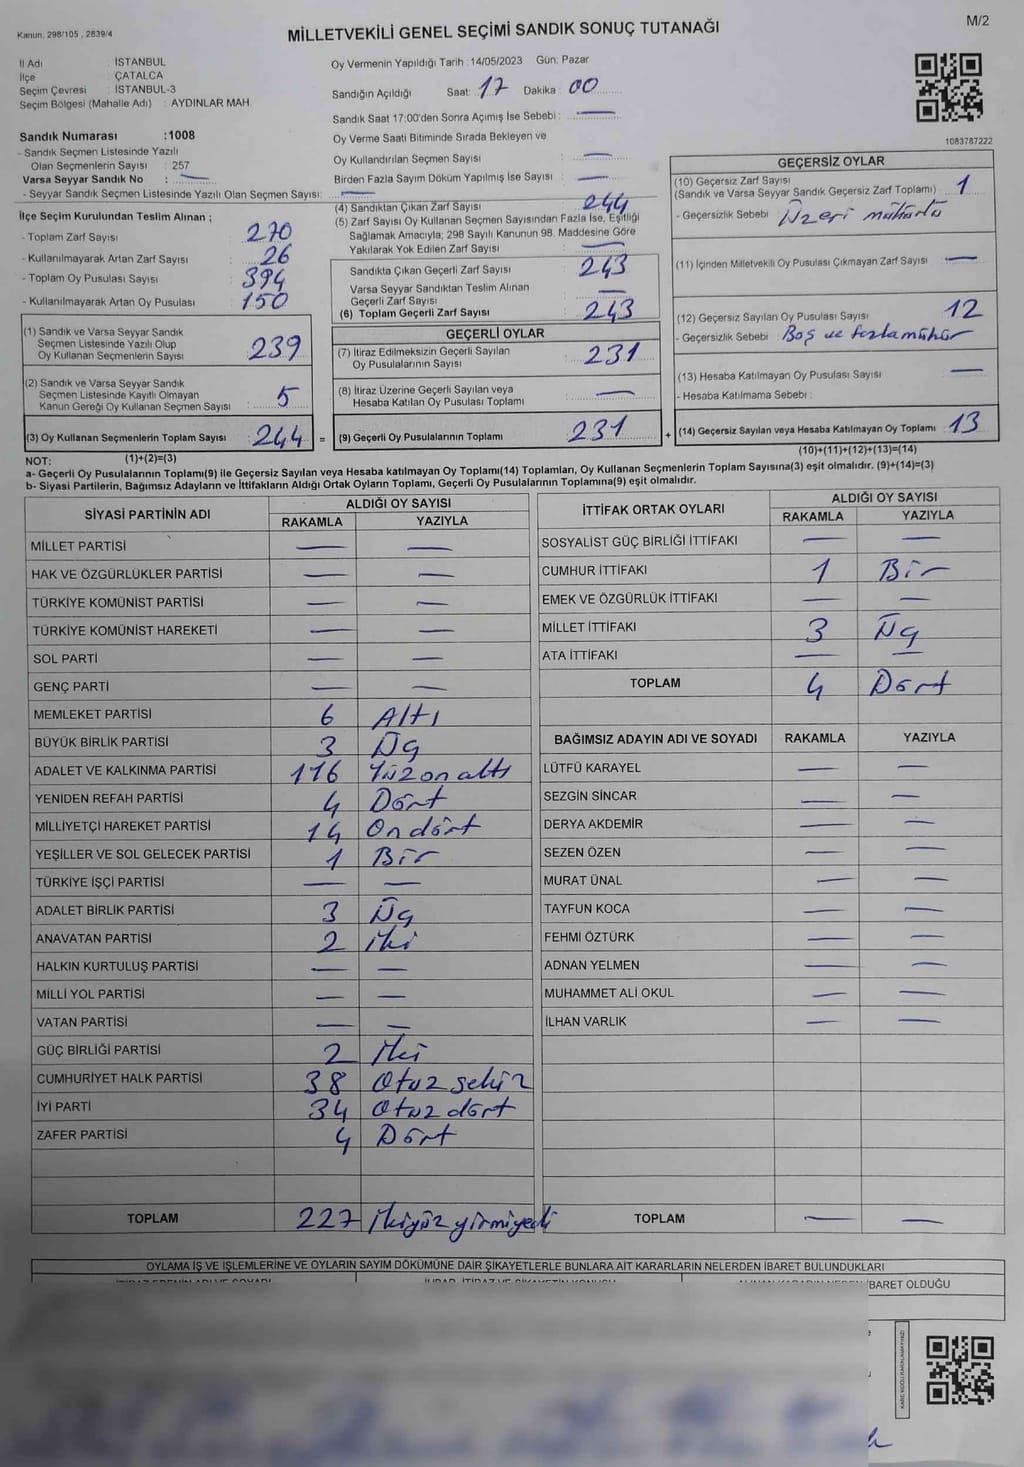 Kanun. 298/105 , 2839/4
MİLLETVEKİLİ GENEL SEÇİMİ SANDIK SONUÇ TUTANAĞI
M/2
İl Adı : İSTANBUL
İlçe : ÇATALCA
Seçim Çevresi : İSTANBUL-3
Seçim Bölgesi (Mahalle Adı) : AYDINLAR MAH
Oy Vermenin Yapıldığı Tarih :14/05/2023 Gün: Pazar
Sandığın Açıldığı Saat: 17 Dakika: 00
Sandık Saat 17:00'den Sonra Açımış İse Sebebi : —
Oy Verme Saati Bitiminde Sırada Bekleyen ve
Oy Kullandırılan Seçmen Sayısı : —
Birden Fazla Sayım Döküm Yapılmış İse Sayısı : —
1083787222
Sandık Numarası :1008
- Sandık Seçmen Listesinde Yazılı
Olan Seçmenlerin Sayısı : 257
Varsa Seyyar Sandık No : —
- Seyyar Sandık Seçmen Listesinde Yazılı Olan Seçmen Sayısı: —
İlçe Seçim Kurulundan Teslim Alınan ;
- Toplam Zarf Sayısı : 270
- Kullanılmayarak Artan Zarf Sayısı : 26
- Toplam Oy Pusulası Sayısı : 394
- Kullanılmayarak Artan Oy Pusulası : 150
(1) Sandık ve Varsa Seyyar Sandık
Seçmen Listesinde Yazılı Olup
Oy Kullanan Seçmenlerin Sayısı : 239
(2) Sandık ve Varsa Seyyar Sandık
Seçmen Listesinde Kayıtlı Olmayan
Kanun Gereği Oy Kullanan Seçmen Sayısı : 5
(3) Oy Kullanan Seçmenlerin Toplam Sayısı : 244 =
(4) Sandıktan Çıkan Zarf Sayısı : 244
(5) Zarf Sayısı Oy Kullanan Seçmen Sayısından Fazla İse, Eşitliği
Sağlamak Amacıyla; 298 Sayılı Kanunun 98. Maddesine Göre
Yakılarak Yok Edilen Zarf Sayısı : —
Sandıkta Çıkan Geçerli Zarf Sayısı : 243
Varsa Seyyar Sandıktan Teslim Alınan
Geçerli Zarf Sayısı : —
(6) Toplam Geçerli Zarf Sayısı : 243
GEÇERLİ OYLAR
(7) İtiraz Edilmeksizin Geçerli Sayılan
Oy Pusulalarının Sayısı : 231
(8) İtiraz Üzerine Geçerli Sayılan veya
Hesaba Katılan Oy Pusulası Toplamı : —
(9) Geçerli Oy Pusulalarının Toplamı : 231 +
GEÇERSİZ OYLAR
(10) Geçersiz Zarf Sayısı
(Sandık ve Varsa Seyyar Sandık Geçersiz Zarf Toplamı) : 1
- Geçersizlik Sebebi : Üzeri mühürlü
(11) İçinden Milletvekili Oy Pusulası Çıkmayan Zarf Sayısı : —
(12) Geçersiz Sayılan Oy Pusulası Sayısı : 12
- Geçersizlik Sebebi : Boş ve fazla mühür
(13) Hesaba Katılmayan Oy Pusulası Sayısı : —
- Hesaba Katılmama Sebebi :
(14) Geçersiz Sayılan veya Hesaba Katılmayan Oy Toplamı : 13
NOT: (1)+(2)=(3)
(10)+(11)+(12)+(13)=(14)
a- Geçerli Oy Pusulalarının Toplamı(9) ile Geçersiz Sayılan veya Hesaba katılmayan Oy Toplamı(14) Toplamları, Oy Kullanan Seçmenlerin Toplam Sayısına(3) eşit olmalıdır. (9)+(14)=(3)
b- Siyasi Partilerin, Bağımsız Adayların ve İttifakların Aldığı Ortak Oyların Toplamı, Geçerli Oy Pusulalarının Toplamına(9) eşit olmalıdır.
SİYASİ PARTİNİN ADI ALDIĞI OY SAYISI
RAKAMLA YAZIYLA
MİLLET PARTİSİ — —
HAK VE ÖZGÜRLÜKLER PARTİSİ — —
TÜRKİYE KOMÜNİST PARTİSİ — —
TÜRKİYE KOMÜNİST HAREKETİ — —
SOL PARTİ — —
GENÇ PARTİ — —
MEMLEKET PARTİSİ 6 Altı
BÜYÜK BİRLİK PARTİSİ 3 Üç
ADALET VE KALKINMA PARTİSİ 116 Yüz on altı
YENİDEN REFAH PARTİSİ 4 Dört
MİLLİYETÇİ HAREKET PARTİSİ 14 On dört
YEŞİLLER VE SOL GELECEK PARTİSİ 1 Bir
TÜRKİYE İŞÇİ PARTİSİ — —
ADALET BİRLİK PARTİSİ 3 Üç
ANAVATAN PARTİSİ 2 iki
HALKIN KURTULUŞ PARTİSİ — —
MİLLİ YOL PARTİSİ — —
VATAN PARTİSİ — —
GÜÇ BİRLİĞİ PARTİSİ 2 iki
CUMHURİYET HALK PARTİSİ 38 Otuz sekiz
İYİ PARTİ 34 Otuz dört
ZAFER PARTİSİ 4 Dört
TOPLAM 227 ikiyüz yirmiyedi
İTTİFAK ORTAK OYLARI ALDIĞI OY SAYISI
RAKAMLA YAZIYLA
SOSYALİST GÜÇ BİRLİĞİ İTTİFAKI — —
CUMHUR İTTİFAKI 1 Bir
EMEK VE ÖZGÜRLÜK İTTİFAKI — —
MİLLET İTTİFAKI 3 Üç
ATA İTTİFAKI — —
TOPLAM 4 Dört
BAĞIMSIZ ADAYIN ADI VE SOYADI RAKAMLA YAZIYLA
LÜTFÜ KARAYEL — —
SEZGİN SİNCAR — —
DERYA AKDEMİR — —
SEZEN ÖZEN — —
MURAT ÜNAL — —
TAYFUN KOCA — —
FEHMİ ÖZTÜRK — —
ADNAN YELMEN — —
MUHAMMET ALİ OKUL — —
İLHAN VARLIK — —
TOPLAM — —
OYLAMA İŞ VE İŞLEMLERİNE VE OYLARIN SAYIM DÖKÜMÜNE DAİR ŞİKAYETLERLE BUNLARA AİT KARARLARIN NELERDEN İBARET BULUNDUKLARI
İBARET OLDUĞU